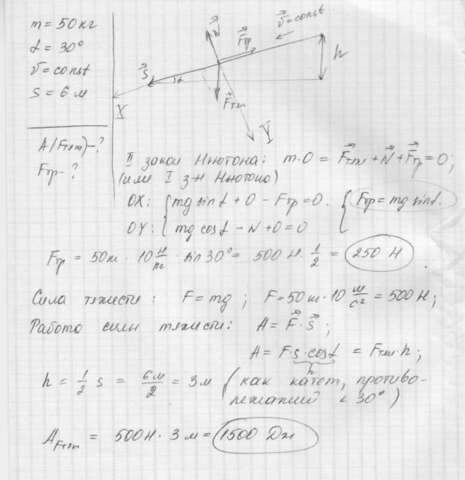 m = 50 кг
α = 30°
v⃗ = const
s = 6 м
A(Fтяж) - ?
Fтр - ?
N⃗
F⃗тр
v⃗ = const
h
S⃗
α
F⃗тяж
X
Y
II закон Ньютона: m·0 = F⃗тяж + N⃗ + F⃗тр = 0;
(или I з-н Ньютона)
OX: { mg sinα + 0 - Fтр = 0. { Fтр = mg sinα.
OY: { mg cosα - N + 0 = 0
Fтр = 50кг · 10 Н/кг · sin 30° = 500 Н · 1/2 = 250 Н.
Сила тяжести: F = mg; F = 50кг · 10 м/с² = 500 Н;
Работа силы тяжести: A = F⃗·s⃗;
A = F·s·cosα = Fтяж h;
h
h = 1/2 s = 6м/2 = 3м (как катет, противо-
лежащий ∠ 30°)
AFтяж = 500Н · 3м = 1500 Дж